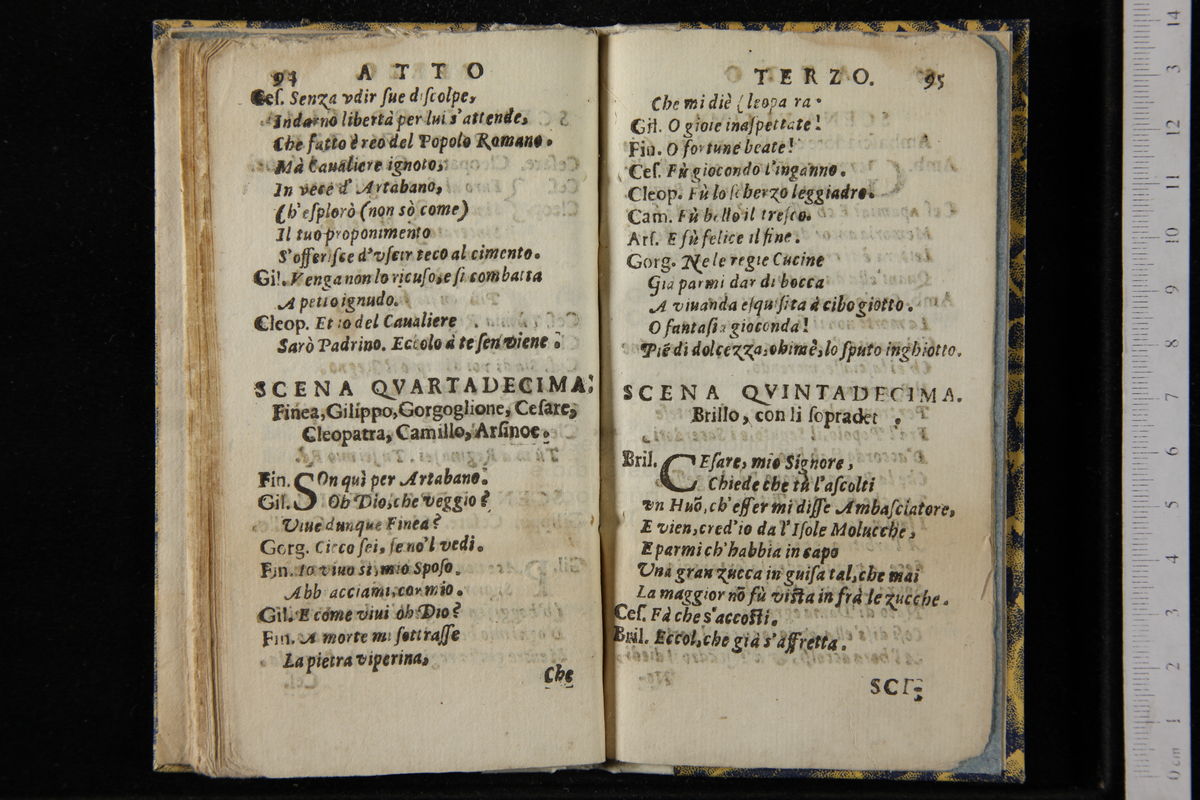 94 ATTO
Ceſ. Senza vdir ſue diſcolpe,
Indarno libertà per lui s'attende,
Che fatto è reo del Popolo Romano.
Mà Caualiere ignoto,
In vece d' Artabano,
Ch'eſplorò (non sò come)
Il tuo proponimento
S'offeriſce d'vſcir teco al cimento.
Gil. Venga non lo ricuſo, e ſi combatta
A petto ignudo.
Cleop. Et io del Caualiere
Sarò Padrino. Eccolo à te ſen viene.
SCENA QVARTADECIMA.
Finea, Gilippo, Gorgoglione, Ceſare,
Cleopatra, Camillo, Arſinoe.
Fin. SOn quì per Artabano.
Gil. Oh Dio, che veggio?
Viue dunque Finea?
Gorg. Cieco ſei, ſe no'l vedi.
Fin. Io viuo sì, mio Spoſo.
Abbracciami, cor mio.
Gil. E come viui oh Dio?
Fin. A morte mi ſottraſſe
La pietra viperina,
Che
TERZO. 95
Che mi diè Cleopara.
Gil. O gioie inaſpettate!
Fin. O fortune beate!
Ceſ. Fù giocondo l'inganno.
Cleop. Fù lo ſcherzo leggiadro.
Cam. Fù bello il treſco.
Arſ. E fù felice il fine.
Gorg. Ne le regie Cucine
Già parmi dar di bocca
A viuanda eſquiſita à cibo giotto.
O fantaſia gioconda!
Piè di dolcezza, ohimè, lo ſputo inghiotto.
SCENA QVINTADECIMA.
Brillo, con li ſopradet.
Bril. CEſare, mio Signore,
Chiede che tù l'aſcolti
vn Huõ, ch'eſſer mi diſſe Ambaſciatore,
E vien, cred'io da l'Iſole Molucche,
E parmi ch'habbia in capo
Vna gran zucca in guiſa tal, che mai
La maggior nõ fù viſta in frà le zucche.
Ceſ. Fà che s'accoſti.
Bril. Eccol, che già s'affretta.
SCE-
0 cm 1 2 3 4 5 6 7 8 9 10 11 12 3 14